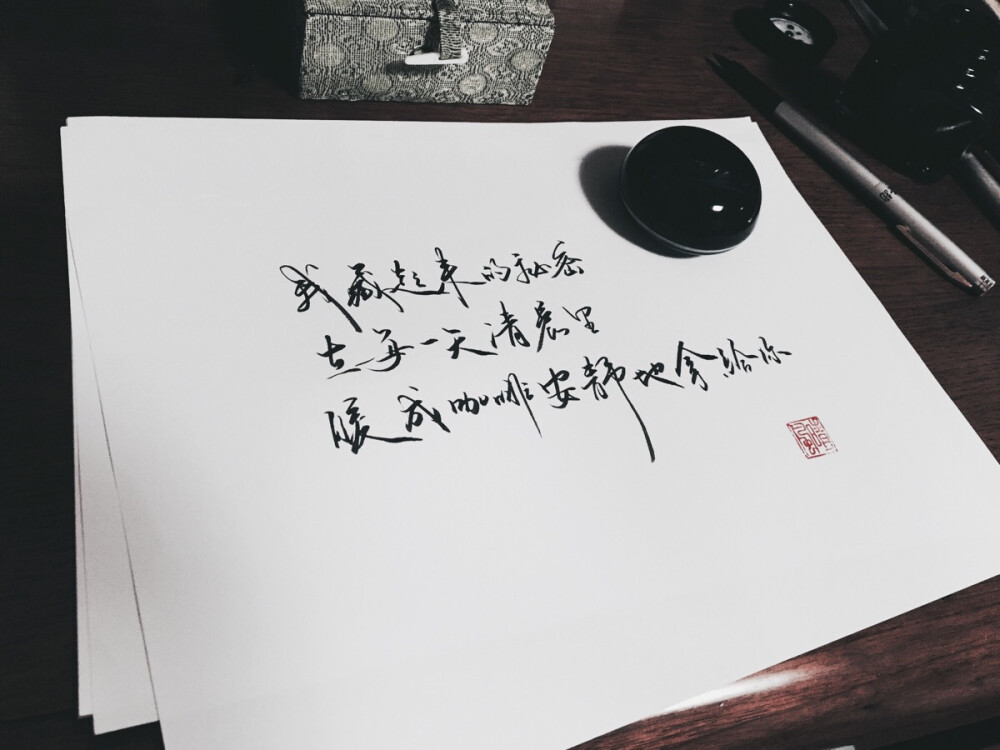 我藏起来的秘密
在每一天清晨里
暖成咖啡安静地拿给你